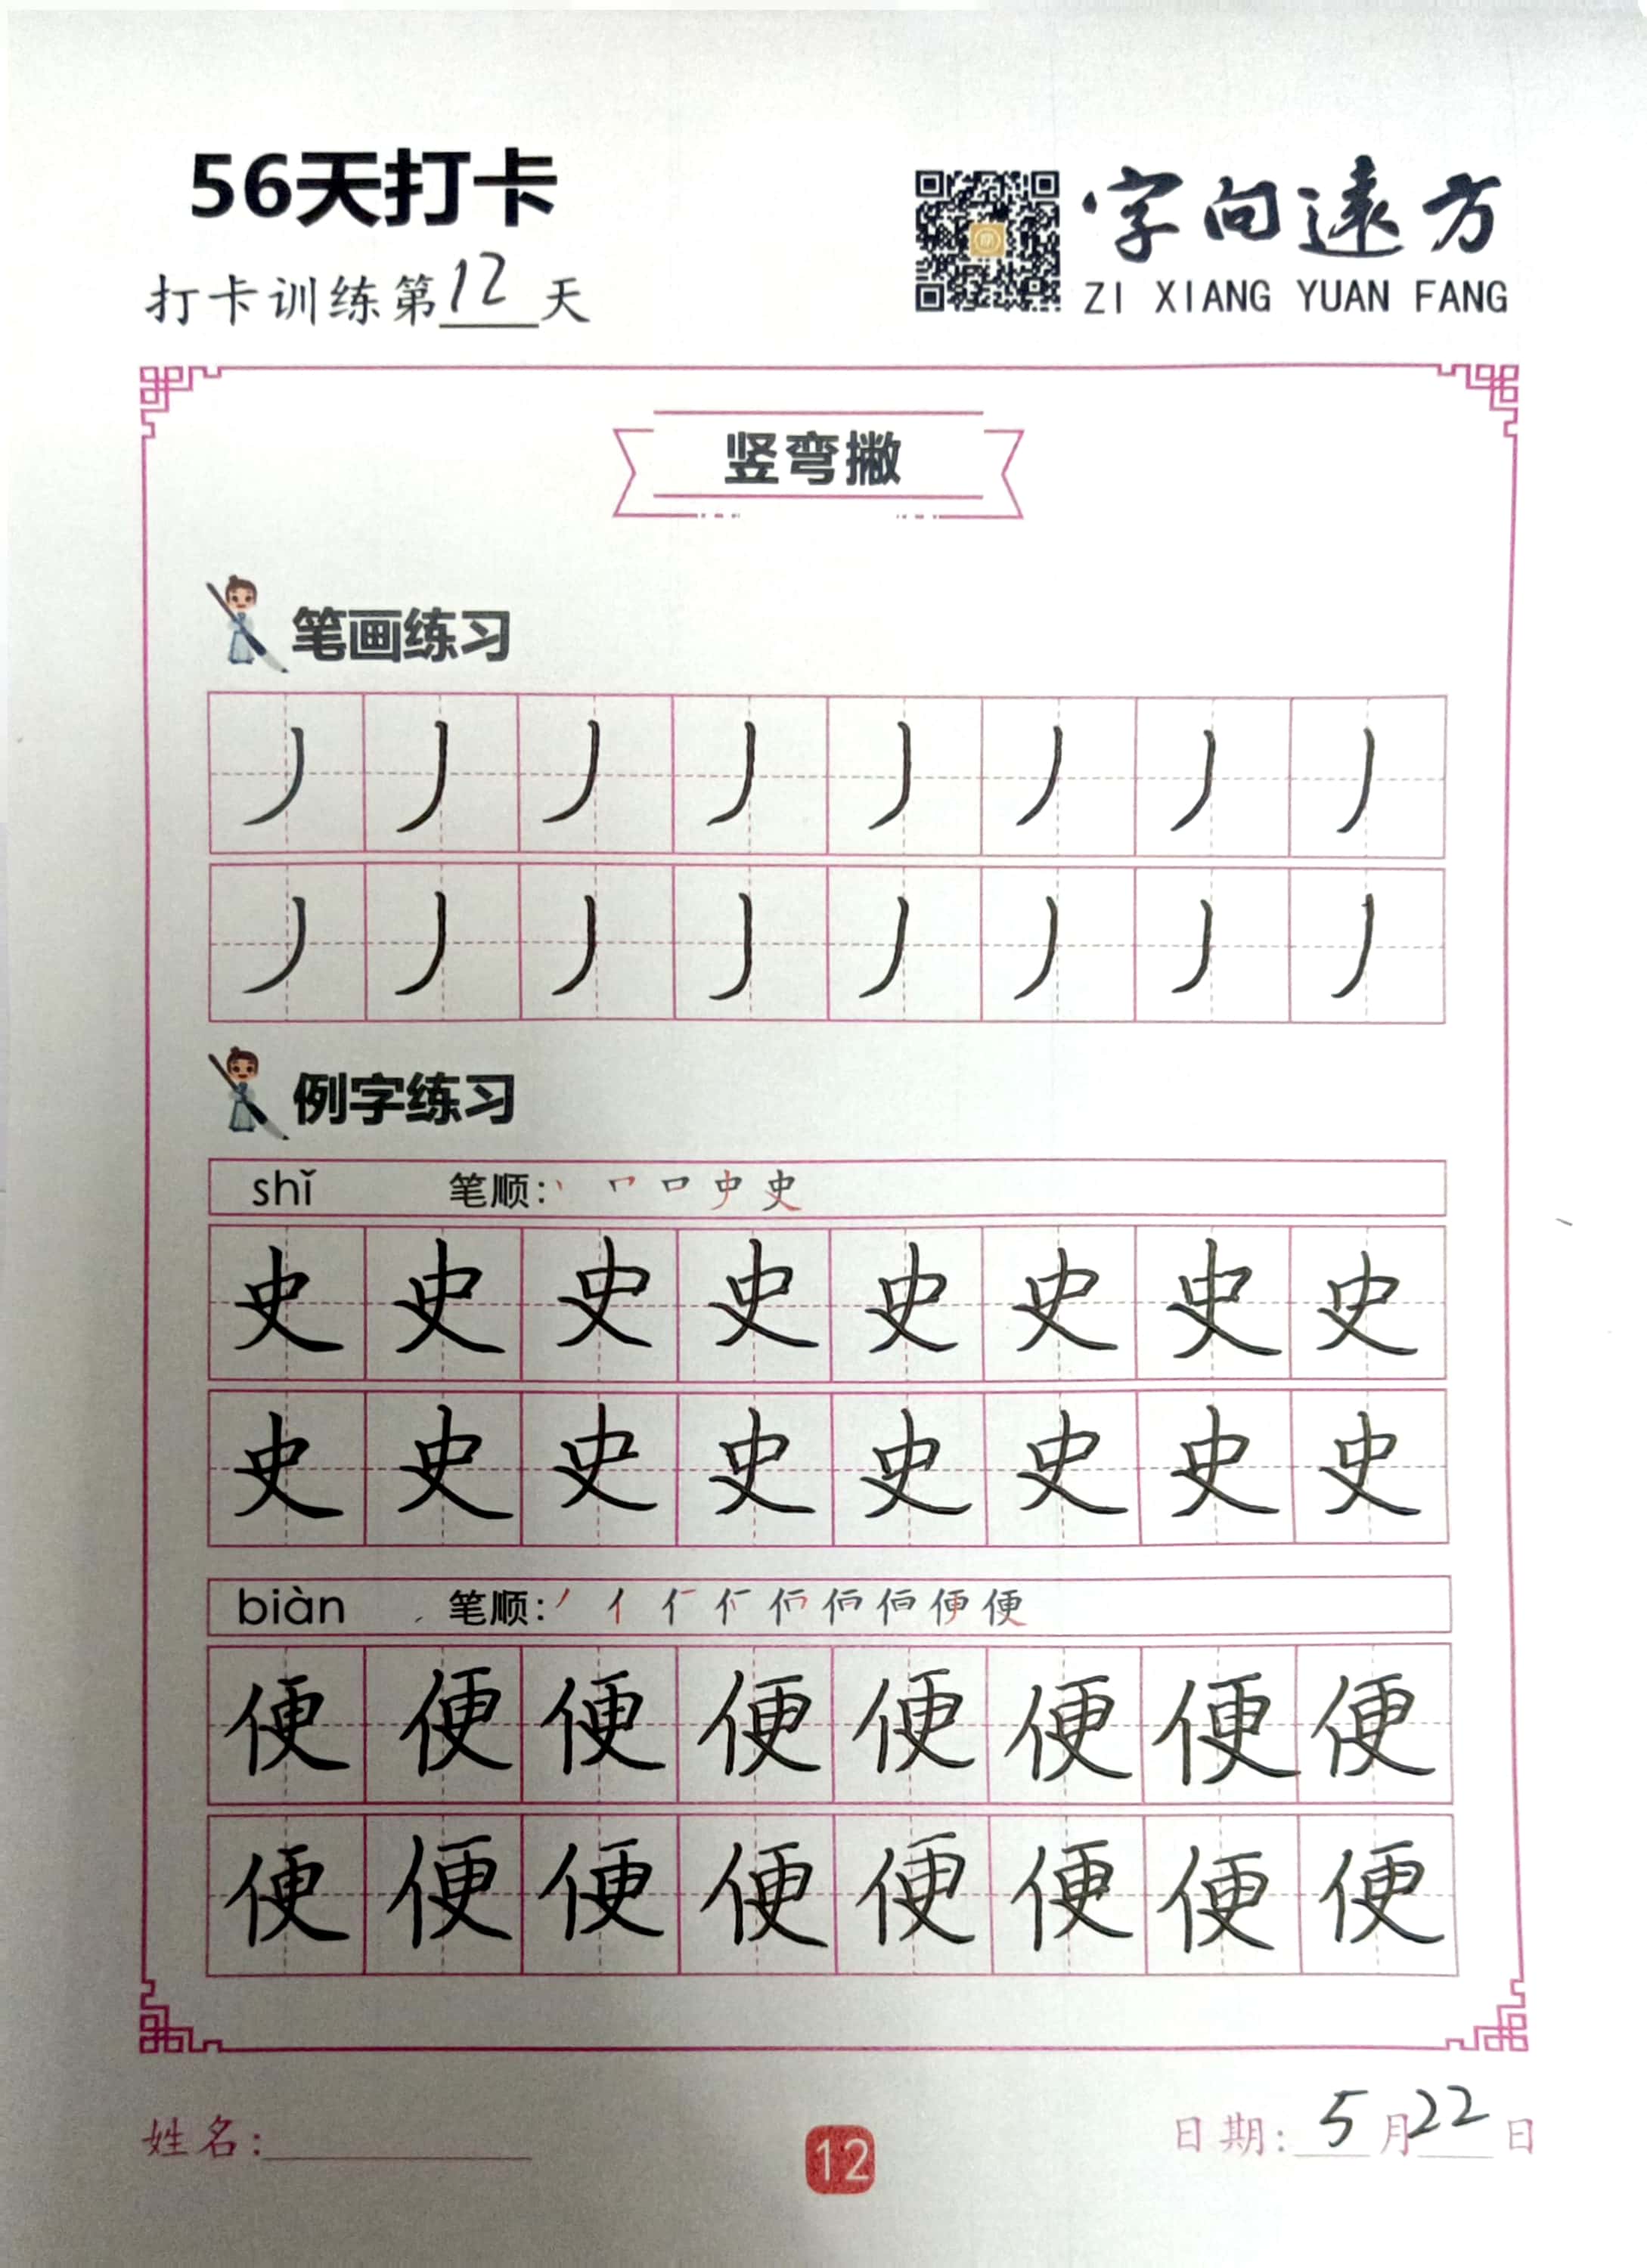 56天打卡
字向遠方
打卡训练第12天
ZI XIANG YUAN FANG
竖弯撇
笔画练习
丿 丿 丿 丿 丿 丿 丿 丿
丿 丿 丿 丿 丿 丿 丿 丿
例字练习
shǐ 笔顺：丶 𠃍 口 史 史
史 史 史 史 史 史 史 史
史 史 史 史 史 史 史 史
biàn 笔顺：丿 亻 便 便
便 便 便 便 便 便 便 便
便 便 便 便 便 便 便 便
姓名：
12
日期：5月22日